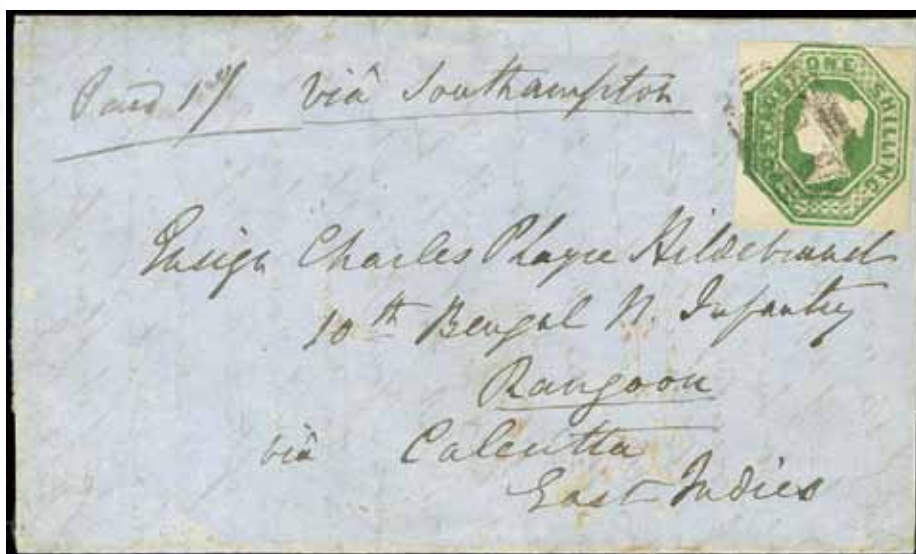 Paid 1s/ viâ Southampton
POSTAGE ONE SHILLING
Ensign Charles Hildebrand
10th Bengal N. Infantry
Rangoon
viâ Calcutta
East Indies